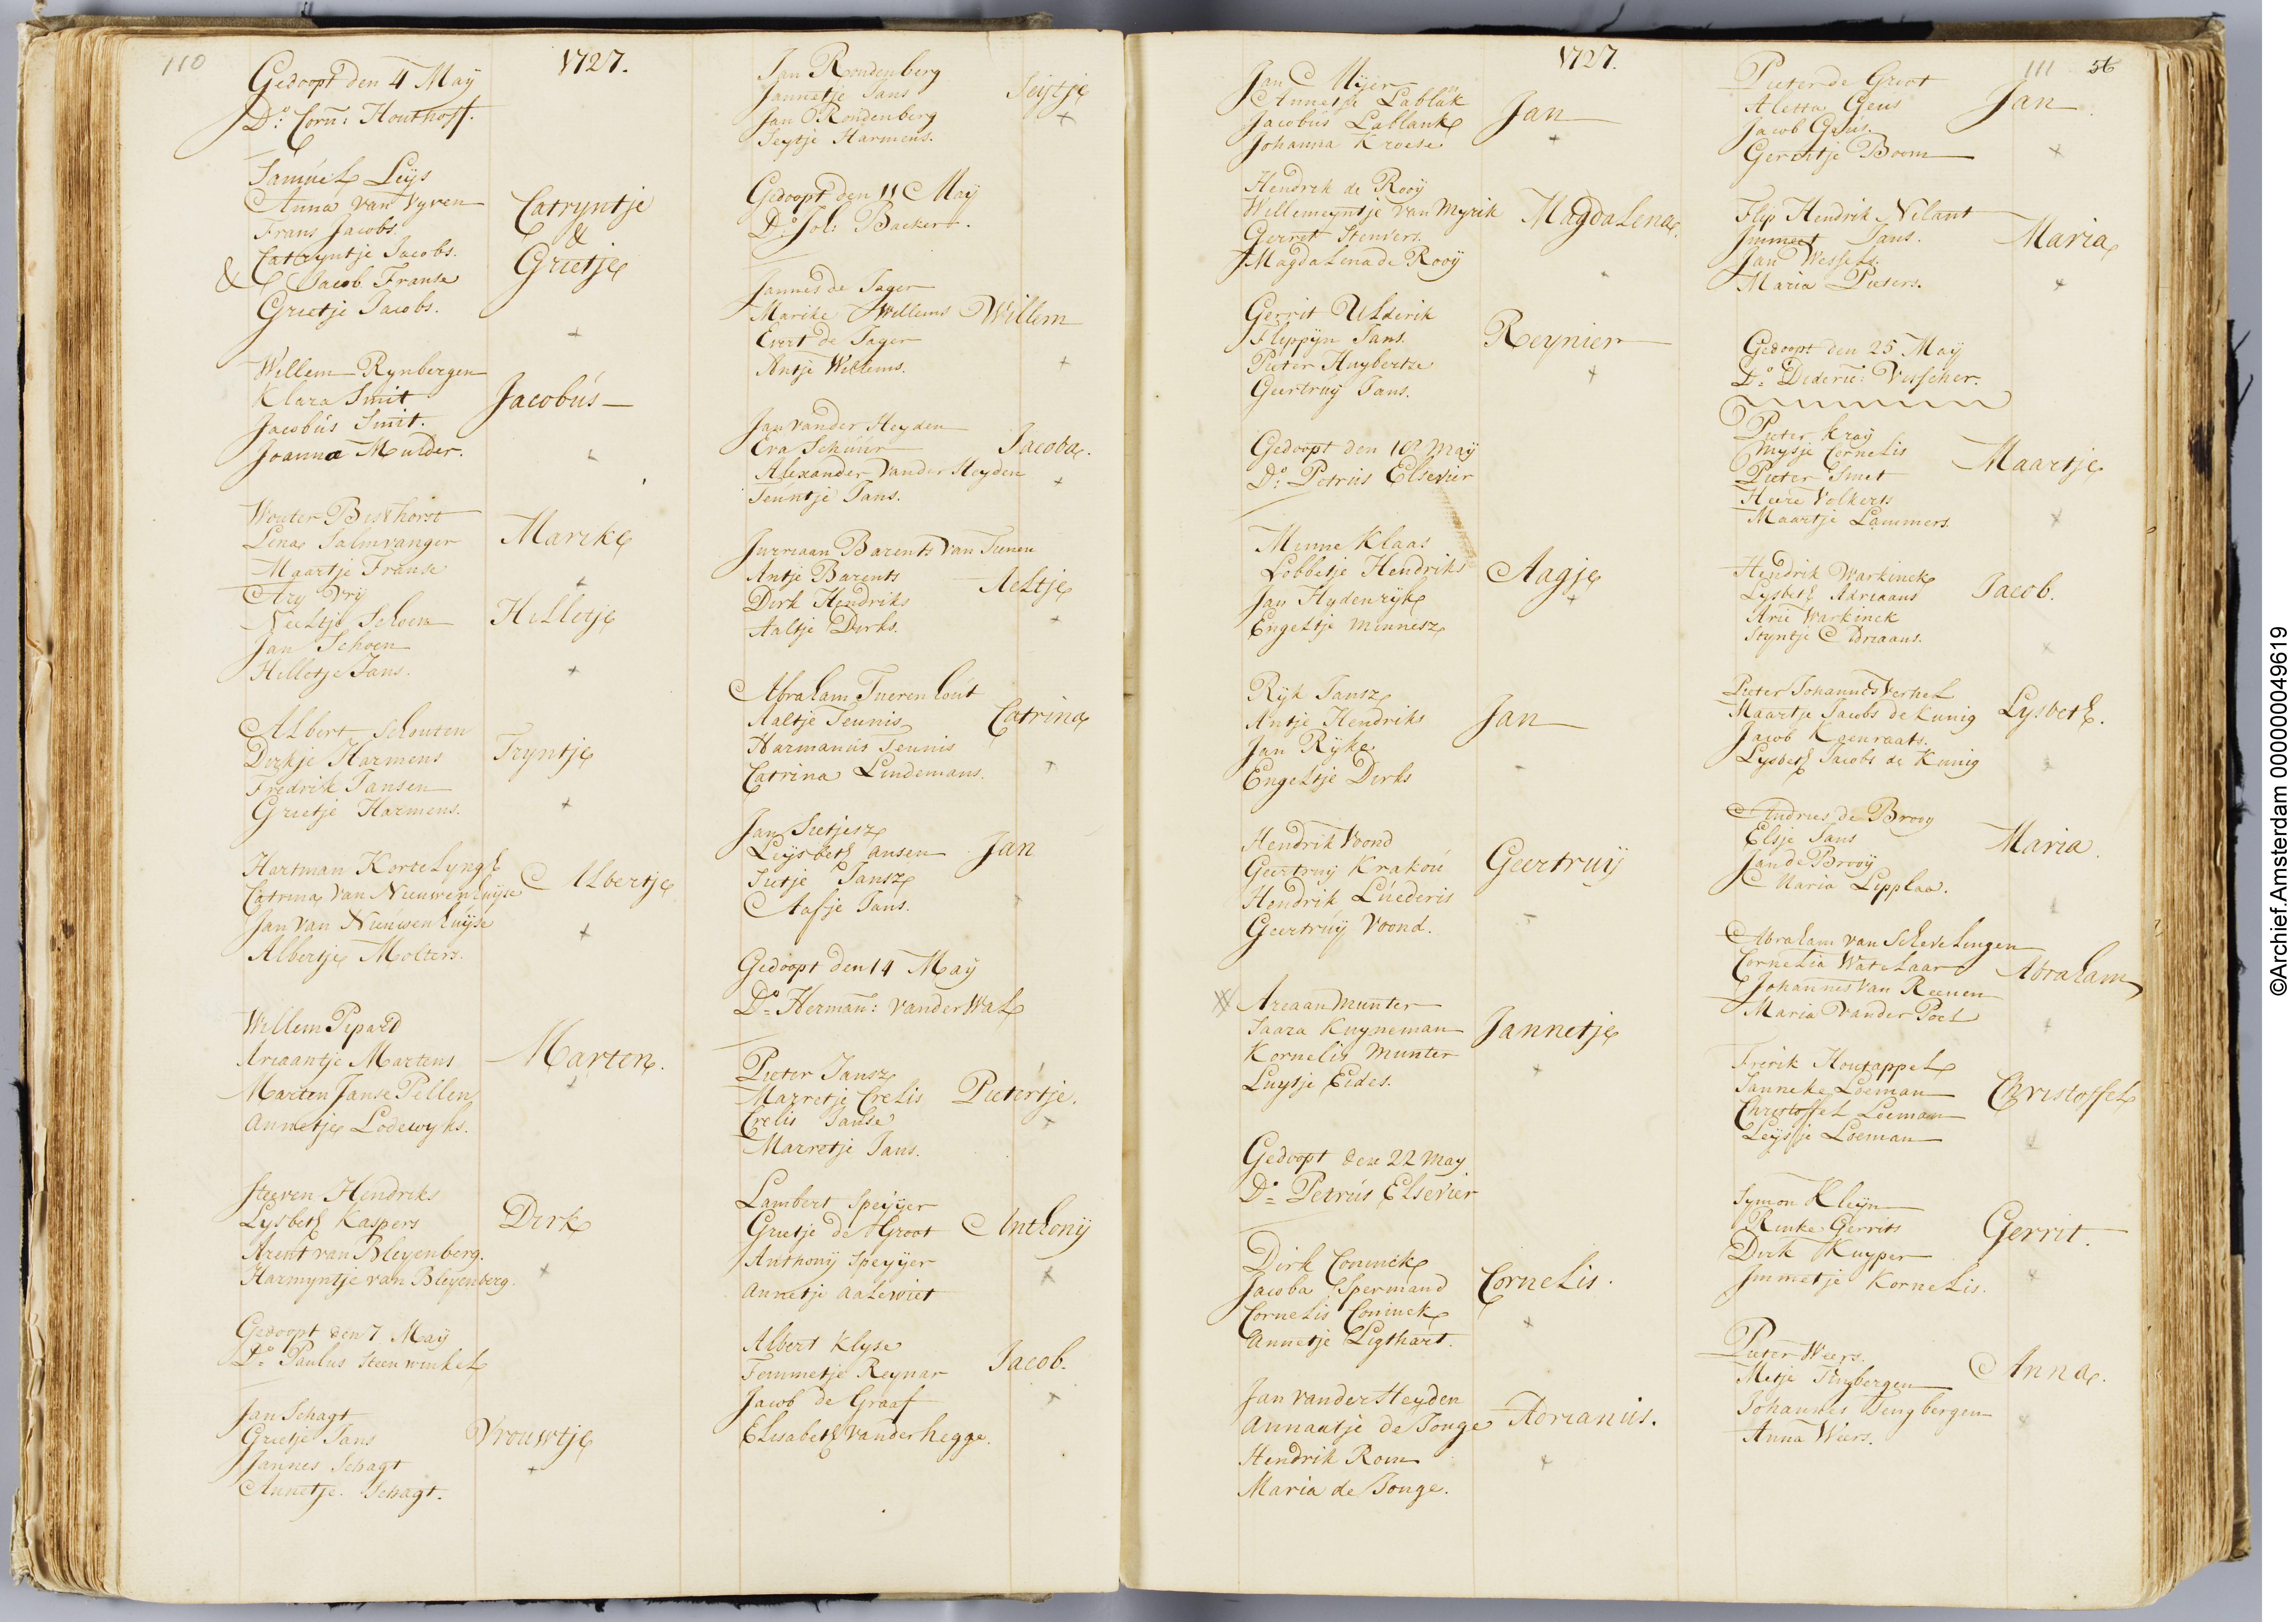 110
1727.
Gedoopt den 4 Maÿ
D.o Corn: Houthoff.
Samúel Leijs
Anna van Vyven
Frans Jacobs.
Catryntje Jacobs.
& Jacob Franse
Grietje Jacobs.
Catryntje
&
Grietje
Willem Rynbergen
Klara Smit
Jacobús Smit.
Joanna Mulder.
Jacobús
Wouter Bisthorst
Lena Salmvanger
Maartje Franse
Marike
Ary Vrÿ
Neeltje Schoen
Jan Schoen
Hilletje Jans.
Hilletje
Albert Schouten
Dirkje Harmens
Fredrik Jansen
Grietje Harmens.
Tryntje
Hartman Kortelyngh
Catrina van Nieuwenhuÿse
Jan van Nieuwenhuÿse
Albertje Molters.
Albertje
Willem Pipard
Ariaantje Martens
Marten Janse Pellen
Annetje Lodewyks.
Marten.
Steeven Hendriks
Lysbeth Kaspers
Arent van Bleyenberg.
Harmyntje van Bleyenberg.
Dirk
Gedoopt den 7 Maÿ
D.o Paulus Steenwinkel
Jan Schagt
Grietje Jans
Jannes Schagt
Annetje Schagt.
Vrouwtje
Jan Rondenberg
Jannetje Jans
Jan Rondenberg
Seytje Harmens.
Seijtje
Gedoopt den 11 Maÿ
D.o Joh: Backert.
Jannes de Jager
Marike Willems
Evert de Jager
Antje Willems.
Willem
Jan vander Heyden
Eva Schúúr
Alexander vander Heyden
Teúntje Jans.
Jacoba.
Jurriaan Barents van Tienen
Antje Barents
Dirk Hendriks
Aaltje Dirks.
Aeltje
Abraham Tuerenhoút
Aaltje Teunis
Harmanús Teunis
Catrina Lindemans.
Catrina
Jan Sietjesz
Leijsbeth Jansen
Sietje Jansz
Aafje Jans.
Jan
Gedoopt den 14 Maÿ
D.o Herman: vander Wal
Pieter Jansz
Marretje Crelis
Crelis Janse
Marretje Jans.
Pietertje.
Lambert Speÿer
Grietje de Groot
Anthonÿ Speÿer
Annetje Aalewiet
Anthonij
Albert Klyse
Femmetje Reynar
Jacob de Graaf
Elisabeth vander hegge.
Jacob.
1727.
Jan Mÿer
Annetje Lablank
Jacobús Lablank
Johanna Kroese
Jan
Hendrik de Rooÿ
Willemeyntje van Myrik
Gerret Stenvers.
Magdalena de Rooÿ
Magdalena.
Gerrit Ulderik
Flippÿn Jans.
Pieter Huybertze
Geertruÿ Jans.
Reynier
Gedoopt den 18 Maÿ
D.o Petrús Elsevier
Minne Klaas
Lobbetje Hendriks
Jan Hydenryk
Engeltje Minnesz
Aagje
Ryk Jansz
Antje Hendriks
Jan Ryke
Engeltje Dirks
Jan
Hendrik Voond
Geertruÿ Krakoú
Hendrik Lúederis
Geertrúÿ Voond.
Geertruÿ
Ariaan Munter
Saara Kuyneman
Kornelis Munter
Luytje Eides.
Jannetje
Gedoopt den 22 May
D.o Petrús Elsevier
Dirk Coninck
Jacoba Spermand
Cornelis Coninck
Annetje Ligthart.
Cornelis.
Jan vander Heyden
Annaatje de Jonge
Hendrik Rom
Maria de Jonge.
Adrianus.
111
56
Pieter de Groot
Aletta Geus
Jacob Geús.
Gerritje Boom
Jan
Flip Hendrik Nilant
Immert Jans.
Jan Wessels.
Maria Pieters.
Maria
Gedoopt den 25 Maÿ
D.o Dideric: Visscher.
Pieter Kraÿ
Mysje Cornelis
Pieter Smet
Heere Volkerts
Maartje Lammers.
Maartje
Hendrik Warkinck
Lysbeth Adriaans
Arie Warkinck
Styntje Adriaans.
Jacob.
Pieter Johannes Verhel
Maartje Jacobs de Kunig
Jacob Koenraats.
Lysbeth Jacobs de Kunig
Lysbeth.
Andries de Brooy
Elsje Jans
Jan de Brooÿ
Maria Lipplaa.
Maria
Abraham van Schevelingen
Cornelia Watelaar
Johannes van Reenen
Maria Vander Poel
Abraham
Fririk Houtappel
Janneke Loeman
Christoffel Loeman
Leijsje Loeman
Christoffel
Symon Kleÿn
Rinke Gerrits
Dirk Kuyper
Immetje Kornelis.
Gerrit.
Pieter Weers.
Metje Tingbergen
Johannes Tengbergen
Anna Weers.
Anna.
©Archief.Amsterdam 000000049619